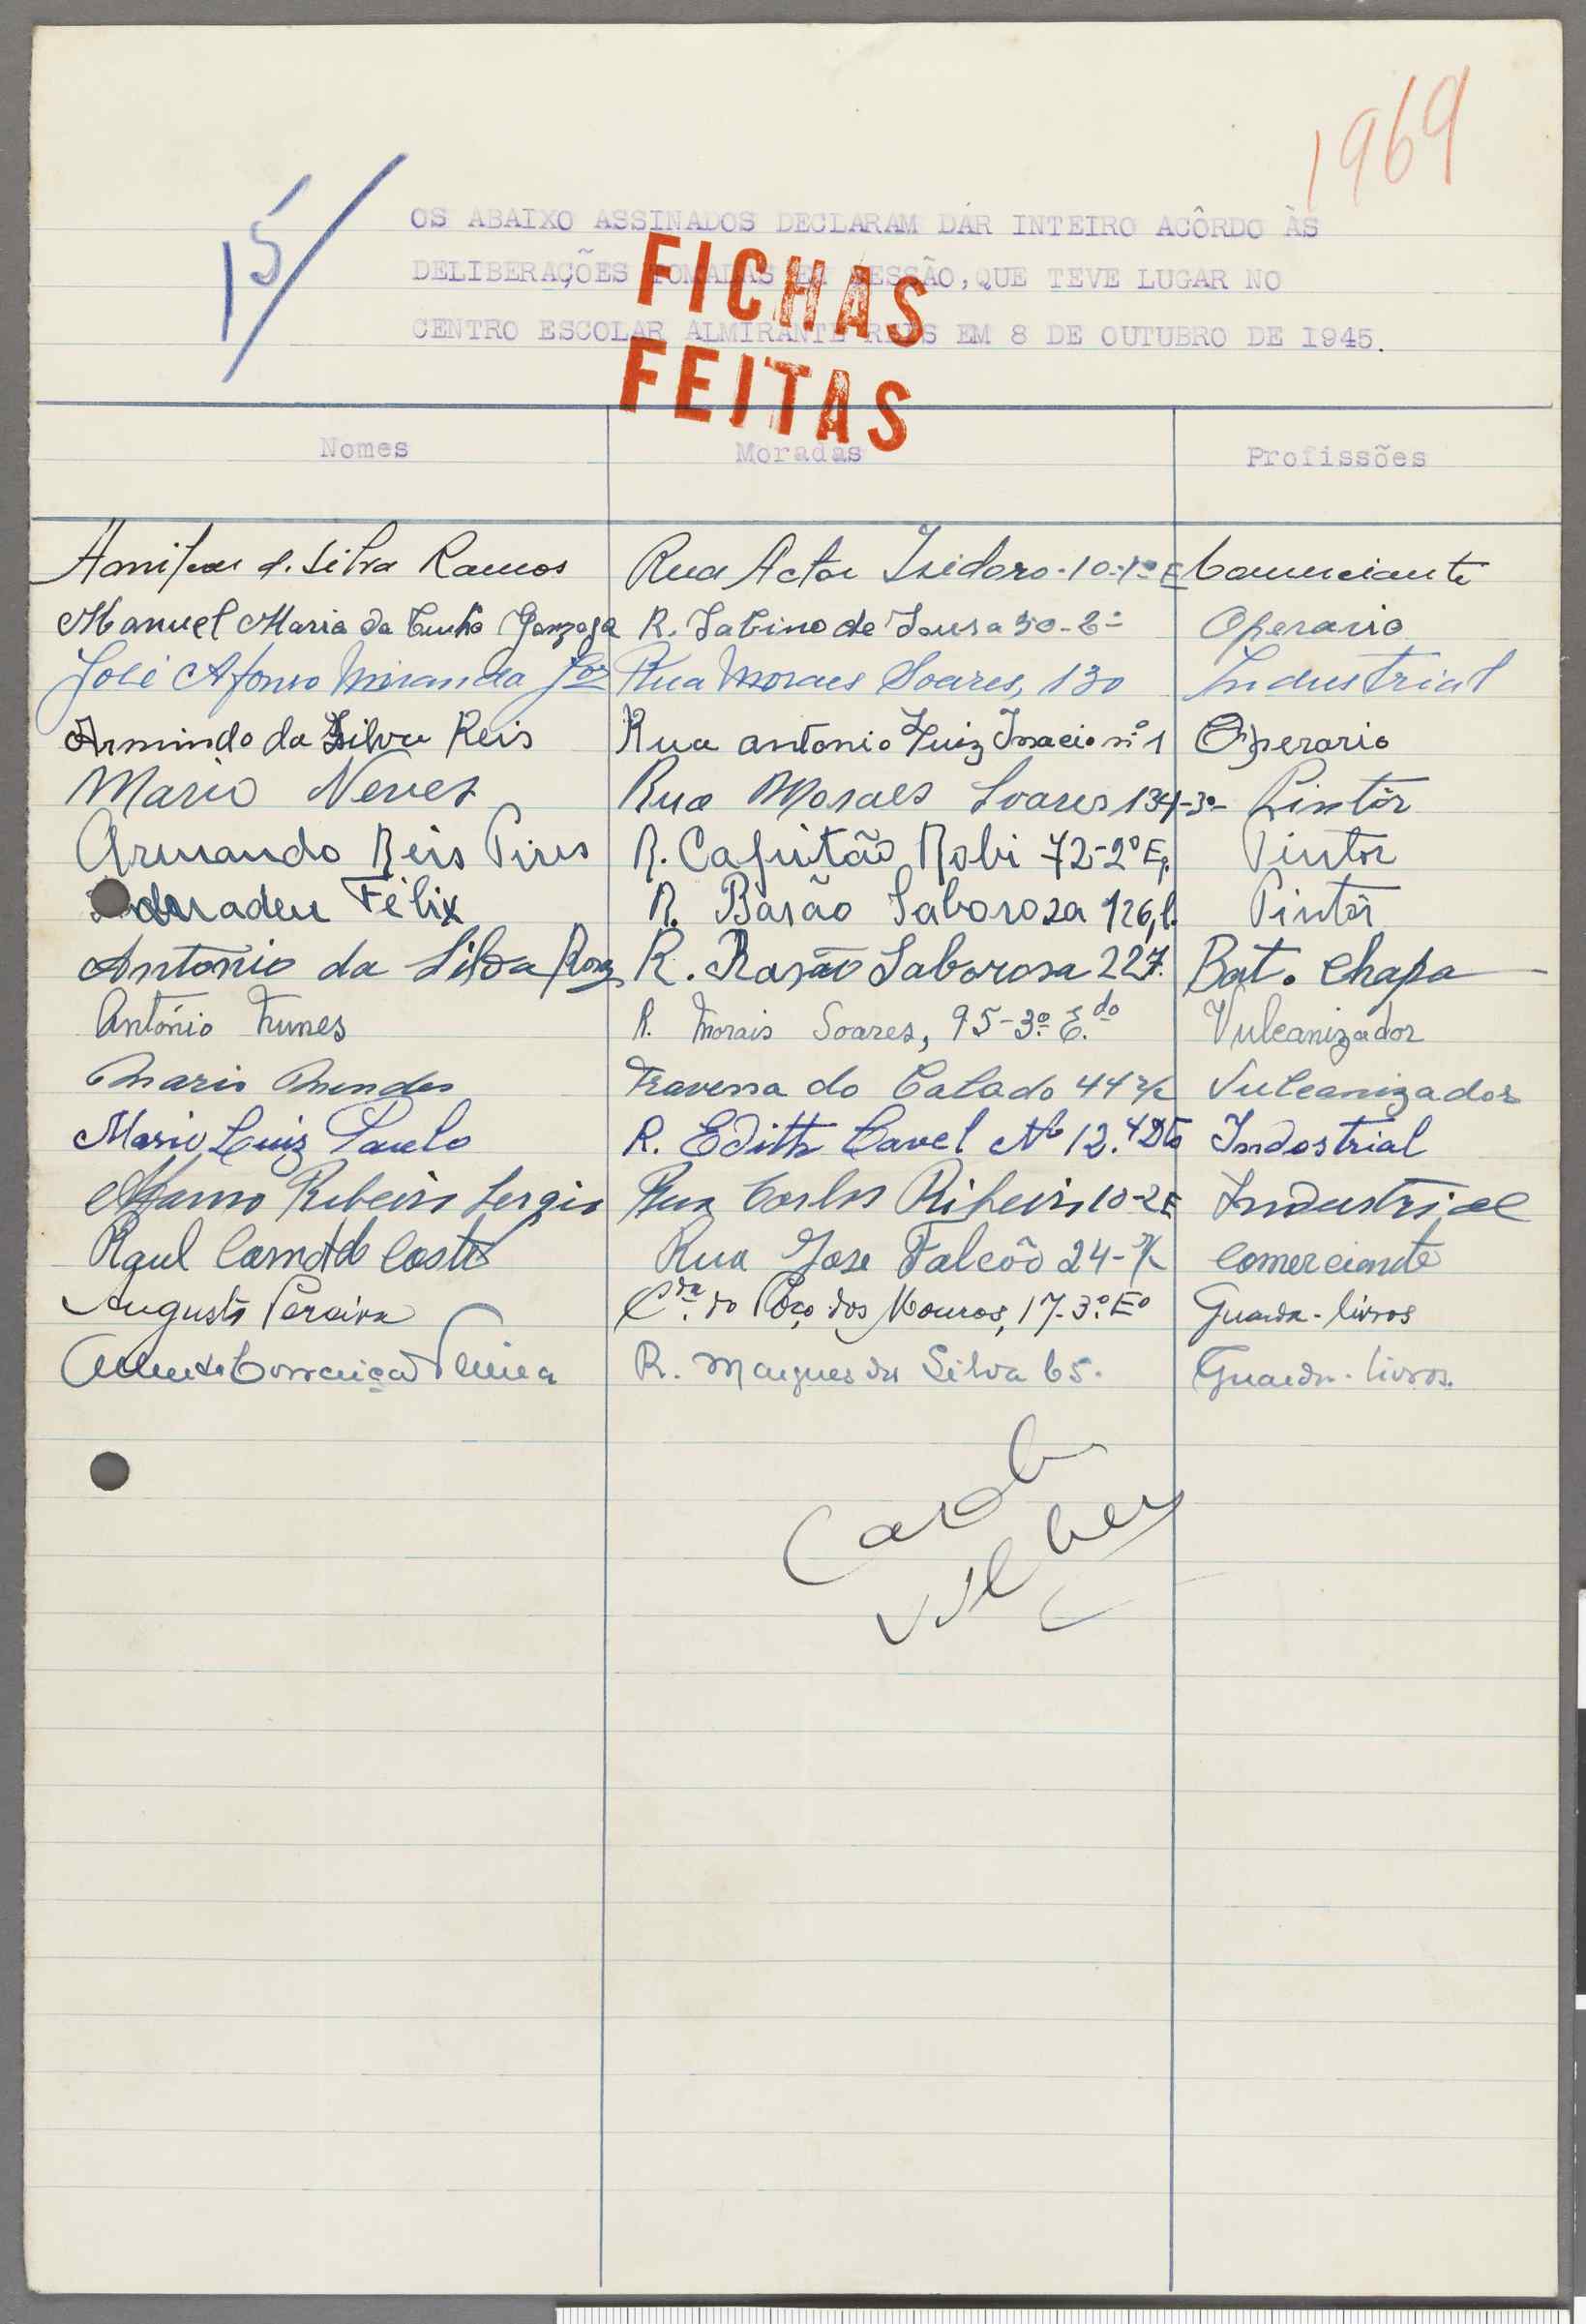 1969
15
OS ABAIXO ASSINADOS DECLARAM DAR INTEIRO ACÔRDO ÀS
DELIBERAÇÕES TOMADAS EM SESSÃO, QUE TEVE LUGAR NO
CENTRO ESCOLAR ALMIRANTE REIS EM 8 DE OUTUBRO DE 1945.
FICHAS
FEITAS
Nomes Moradas Profissões
d. Silva Ramos Rua Actor Isidoro-10-1º E Comerciante
Manuel Maria da Cunha Gonzaga R. Sabino de Sousa 50-2º Operario
José Afonso Miranda Jor Rua Moraes Soares, 130 Industrial
Armindo da Silva Reis Rua antonio Luiz Inacio nº 1 Operario
Mario Neves Rua Moraes Soares 134-3º- Pintôr
Armando Reis Pires R. Capitão Robi 72-2º E. Pintor
Félix R. Barão Saboroza 126, Pintôr
Antonio da Silva Rosa R. Barão Saborosa 227. Bat. Chapa
António Nunes R. Morais Soares, 95-3º E.do Vulcanizador
Mario Mendes Travessa do Calado 44 r/c Vulcanizador
Mario Luiz Paulo R. Edith Cavel Nº 12.4 Dto Indostrial
Ribeiro Sergio Rua Carlos Ribeiro 10-2E Industrial
Raul Costa Rua Jose Falcão 24-r/c Comerciante
Augusto Pereira C.da do Poço dos Mouros, 17-3º. Eº Guarda-livros
R. Marques da Silva 65. Guarda-livros.